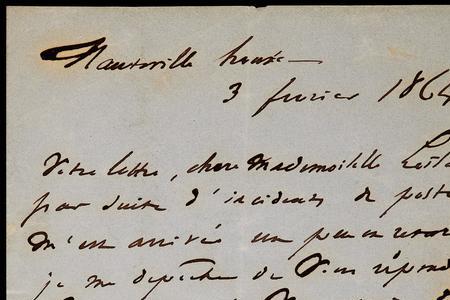 Hauteville house
3 février 186
Votre lettre, chère Mademoiselle
par suite d'incidents de poste
m'est arrivée un peu en retar
je me dépêche de vous répond